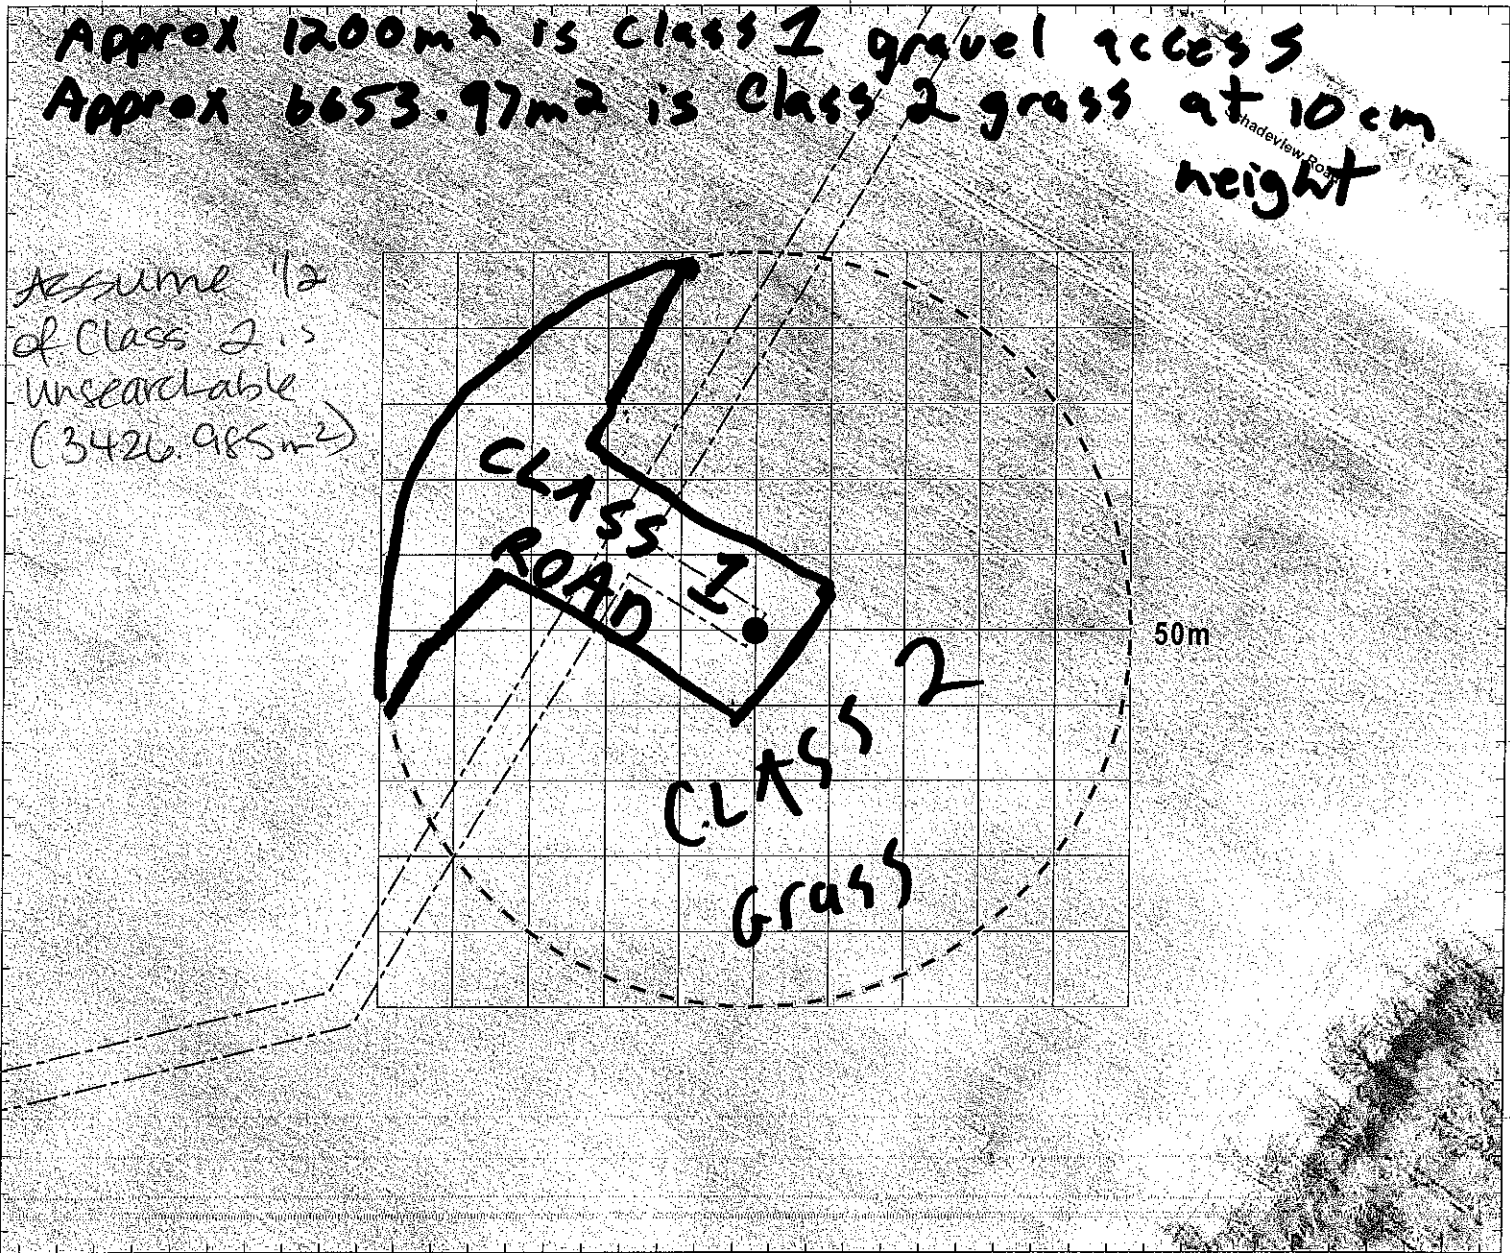 Approx 1200m² is Class 1 gravel access
Approx 6653.97m² is Class 2 grass at 10cm
height
Schadeview Road
Assume 1/2
of Class 2 is
unsearchable
(3426.985m²)
CLASS 1
ROAD
50m
CLASS 2
Grass